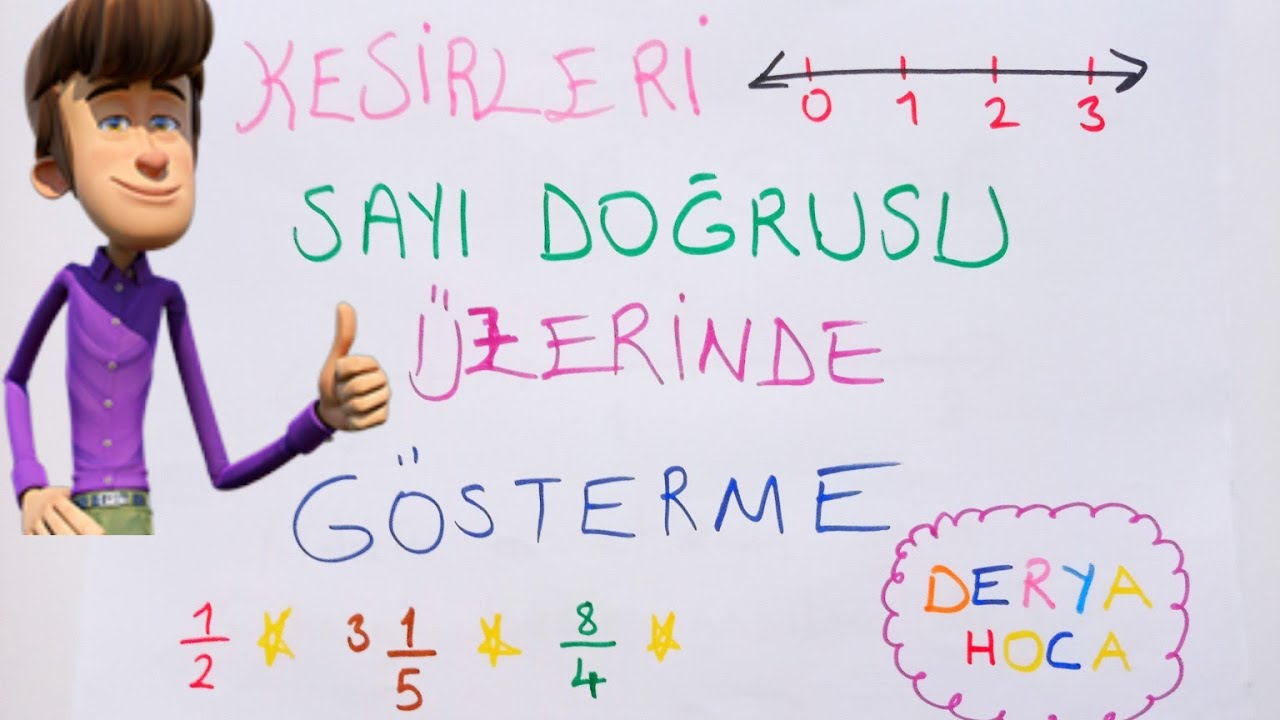 KESİRLERİ
0 1 2 3
SAYI DOĞRUSU
ÜZERİNDE
GÖSTERME
1/2 3 1/5 8/4
DERYA
HOCA